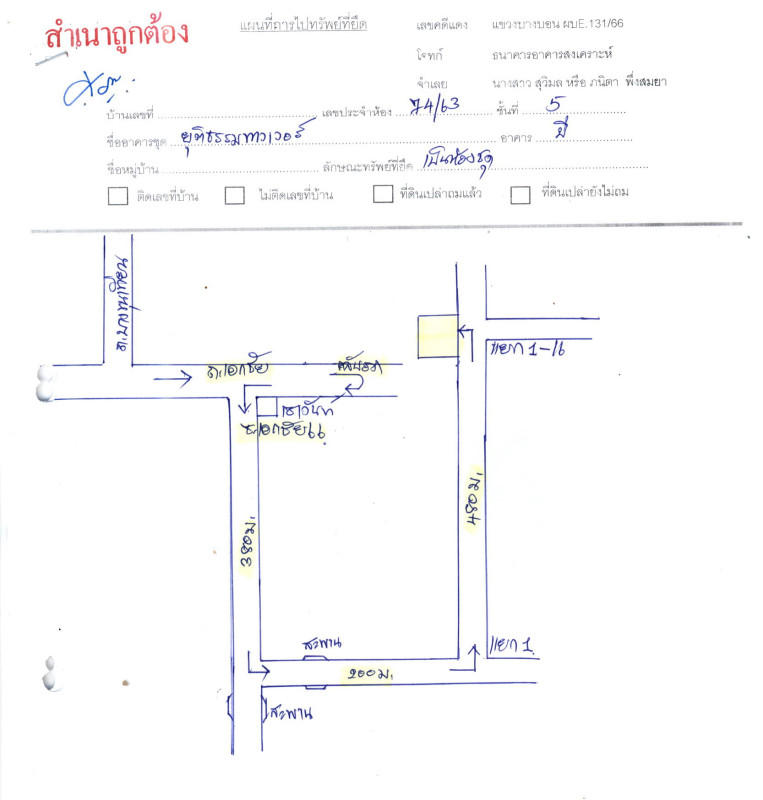 สำเนาถูกต้อง
แผนที่การไปทรัพย์ที่ยึด
เลขคดีแดง แขวงบางบอน ผบE.131/66
โจทก์ ธนาคารอาคารสงเคราะห์
จำเลย นางสาว สุวิมล หรือ ภนิตา พึ่งสมยา
บ้านเลขที่ เลขประจำห้อง 74/63 ชั้นที่ 5
ชื่ออาคารชุด ยุติธรรมทาวเวอร์ อาคาร บี
ชื่อหมู่บ้าน ลักษณะทรัพย์ที่ยึด เป็นห้องชุด
ติดเลขที่บ้าน ไม่ติดเลขที่บ้าน ที่ดินเปล่าถมแล้ว ที่ดินเปล่ายังไม่ถม
ถ.บางขุนเทียน
ถ.เอกชัย
แยก 1-16
ซ.เอกชัย66
380 ม.
480 ม.
สะพาน
แยก 1
200 ม.
สะพาน